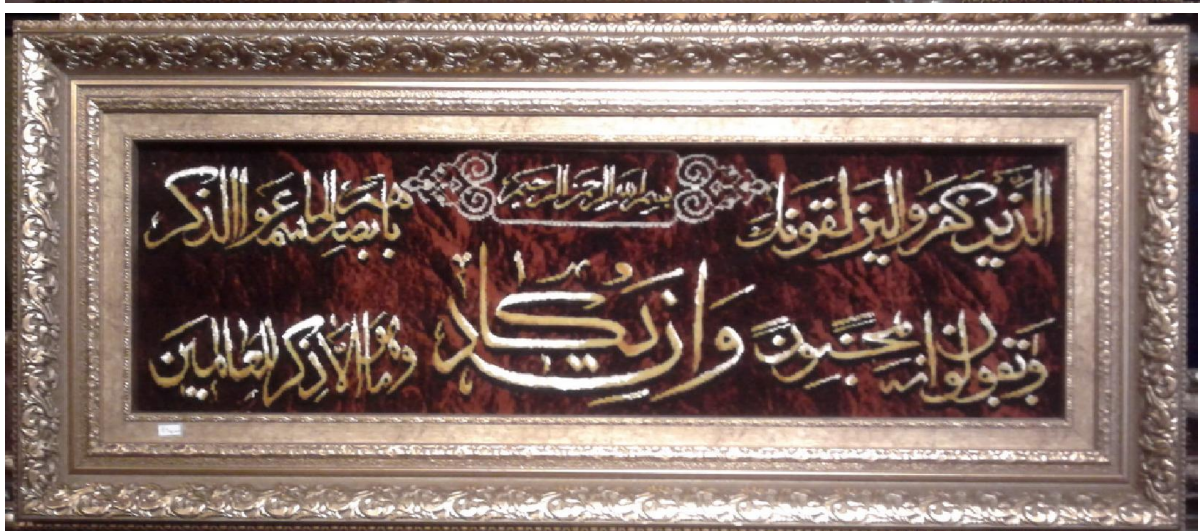 بسم الله الرحمن الرحیم
وان یکاد
الذین کفروا لیزلقونک
بابصارهم لما سمعوا الذکر
ویقولون انه لمجنون
وما هو الا ذکر للعالمین